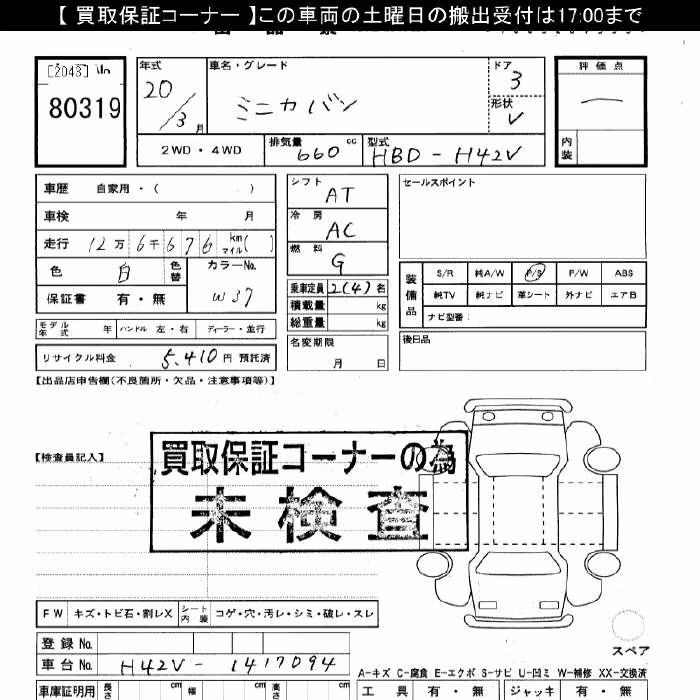 【 買取保証コーナー 】この車両の土曜日の搬出受付は17:00まで
[2043]
80319
年式
20/3月
車名・グレード
ミニカバン
ドア
3
形状
V
評価点
内装
2WD ・ 4WD
排気量 660 cc
型式 HBD - H42V
車歴 自家用・( )
車検 年 月
走行 12万 6千 676 km マイル( )
色 白 色替 カラーNo. W37
保証書 有・無
モデル年式 年 ハンドル 左・右 ディーラー・並行
リサイクル料金 5,410 円 預託済
シフト AT
冷房 AC
燃料 G
乗車定員 2(4) 名
積載量 kg
総重量 kg
名変期限
月 日
セールスポイント
装備品
S/R 純A/W P/S P/W ABS
純TV 純ナビ 革シート 外ナビ エアB
ナビ型番:
後日品
【出品店申告欄(不良箇所・欠品・注意事項等)】
【検査員記入】
買取保証コーナーの為
未検査
FW キズ・トビ石・割レX シート内装 コゲ・穴・汚レ・シミ・破レ・スレ
登録No.
車台No. H42V - 1417094
スペア
A-キズ C-腐食 E-エクボ S-サビ U-凹ミ W-補修 XX-交換済
車庫証明用 長さ cm 幅 cm 高さ cm
工具 有・無 ジャッキ 有・無